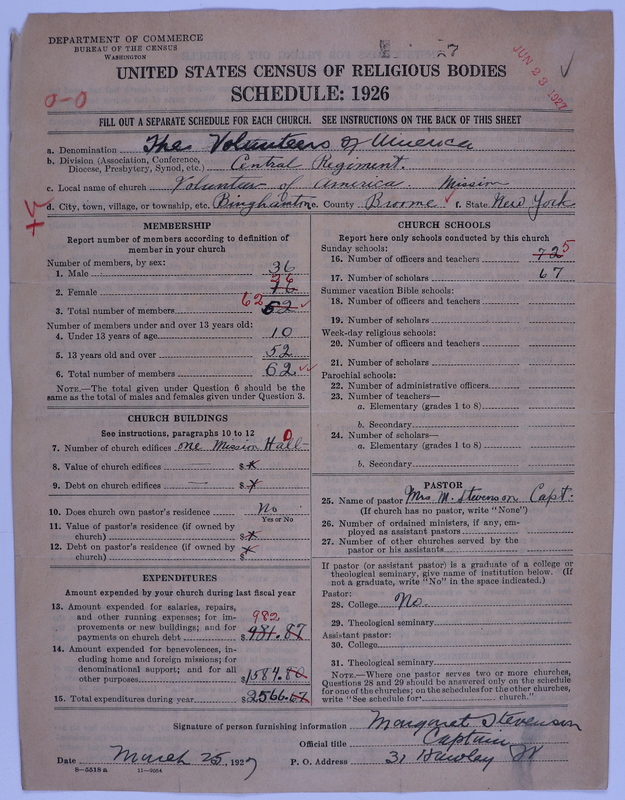 DEPARTMENT OF COMMERCE
BUREAU OF THE CENSUS
WASHINGTON
JUN 23 1927
UNITED STATES CENSUS OF RELIGIOUS BODIES
SCHEDULE: 1926
0-0
FILL OUT A SEPARATE SCHEDULE FOR EACH CHURCH. SEE INSTRUCTIONS ON THE BACK OF THIS SHEET
a. Denomination The Volunteers of America
b. Division (Association, Conference, Diocese, Presbytery, Synod, etc.) Central Regiment.
c. Local name of church Volunteer of America. Mission
d. City, town, village, or township, etc. Binghamton e. County Broome f. State New York
MEMBERSHIP
Report number of members according to definition of member in your church
Number of members, by sex:
1. Male 36
2. Female 26
3. Total number of members 62 52
Number of members under and over 13 years old:
4. Under 13 years of age 10
5. 13 years old and over 52
6. Total number of members 62
NOTE.—The total given under Question 6 should be the same as the total of males and females given under Question 3.
CHURCH BUILDINGS
See instructions, paragraphs 10 to 12
7. Number of church edifices one Mission Hall 0
8. Value of church edifices $
9. Debt on church edifices $
10. Does church own pastor's residence No
Yes or No
11. Value of pastor's residence (if owned by church) $
12. Debt on pastor's residence (if owned by church) $
EXPENDITURES
Amount expended by your church during last fiscal year
13. Amount expended for salaries, repairs, and other running expenses; for improvements or new buildings; and for payments on church debt $ 982 981.87
14. Amount expended for benevolences, including home and foreign missions; for denominational support; and for all other purposes $1584.80
15. Total expenditures during year $2566.67
CHURCH SCHOOLS
Report here only schools conducted by this church
Sunday schools:
16. Number of officers and teachers 72 5
17. Number of scholars 67
Summer vacation Bible schools:
18. Number of officers and teachers
19. Number of scholars
Week-day religious schools:
20. Number of officers and teachers
21. Number of scholars
Parochial schools:
22. Number of administrative officers
23. Number of teachers—
a. Elementary (grades 1 to 8)
b. Secondary
24. Number of scholars—
a. Elementary (grades 1 to 8)
b. Secondary
PASTOR
25. Name of pastor Mrs. M. Stevenson Capt.
(If church has no pastor, write "None")
26. Number of ordained ministers, if any, employed as assistant pastors
27. Number of other churches served by the pastor or his assistants
If pastor (or assistant pastor) is a graduate of a college or theological seminary, give name of institution below. (If not a graduate, write "No" in the space indicated.)
Pastor:
28. College No.
29. Theological seminary
Assistant pastor:
30. College
31. Theological seminary
NOTE.—Where one pastor serves two or more churches, Questions 28 and 29 should be answered only on the schedule for one of the churches; on the schedules for the other churches, write "See schedule for church."
Signature of person furnishing information Margaret Stevenson
Official title Captain
Date March 25, 1927 P. O. Address 31 Hawley St
8—5518a 11—9064